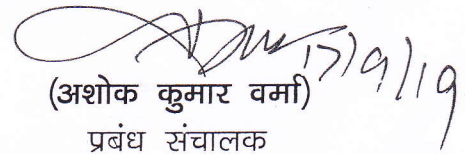 17/9/19
(अशोक कुमार वर्मा)
प्रबंध संचालक